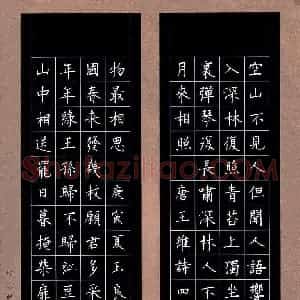 空山不見人但聞人語響
入深林復照青苔上獨坐
裏彈琴復長嘯深林人不
月來相照 唐王維詩四
物最相思 庚寅夏玉良
國春來發幾枝願君多采
年年綠王孫歸不歸 紅豆
山中相送罷日暮掩柴扉
Shufaziliao.com